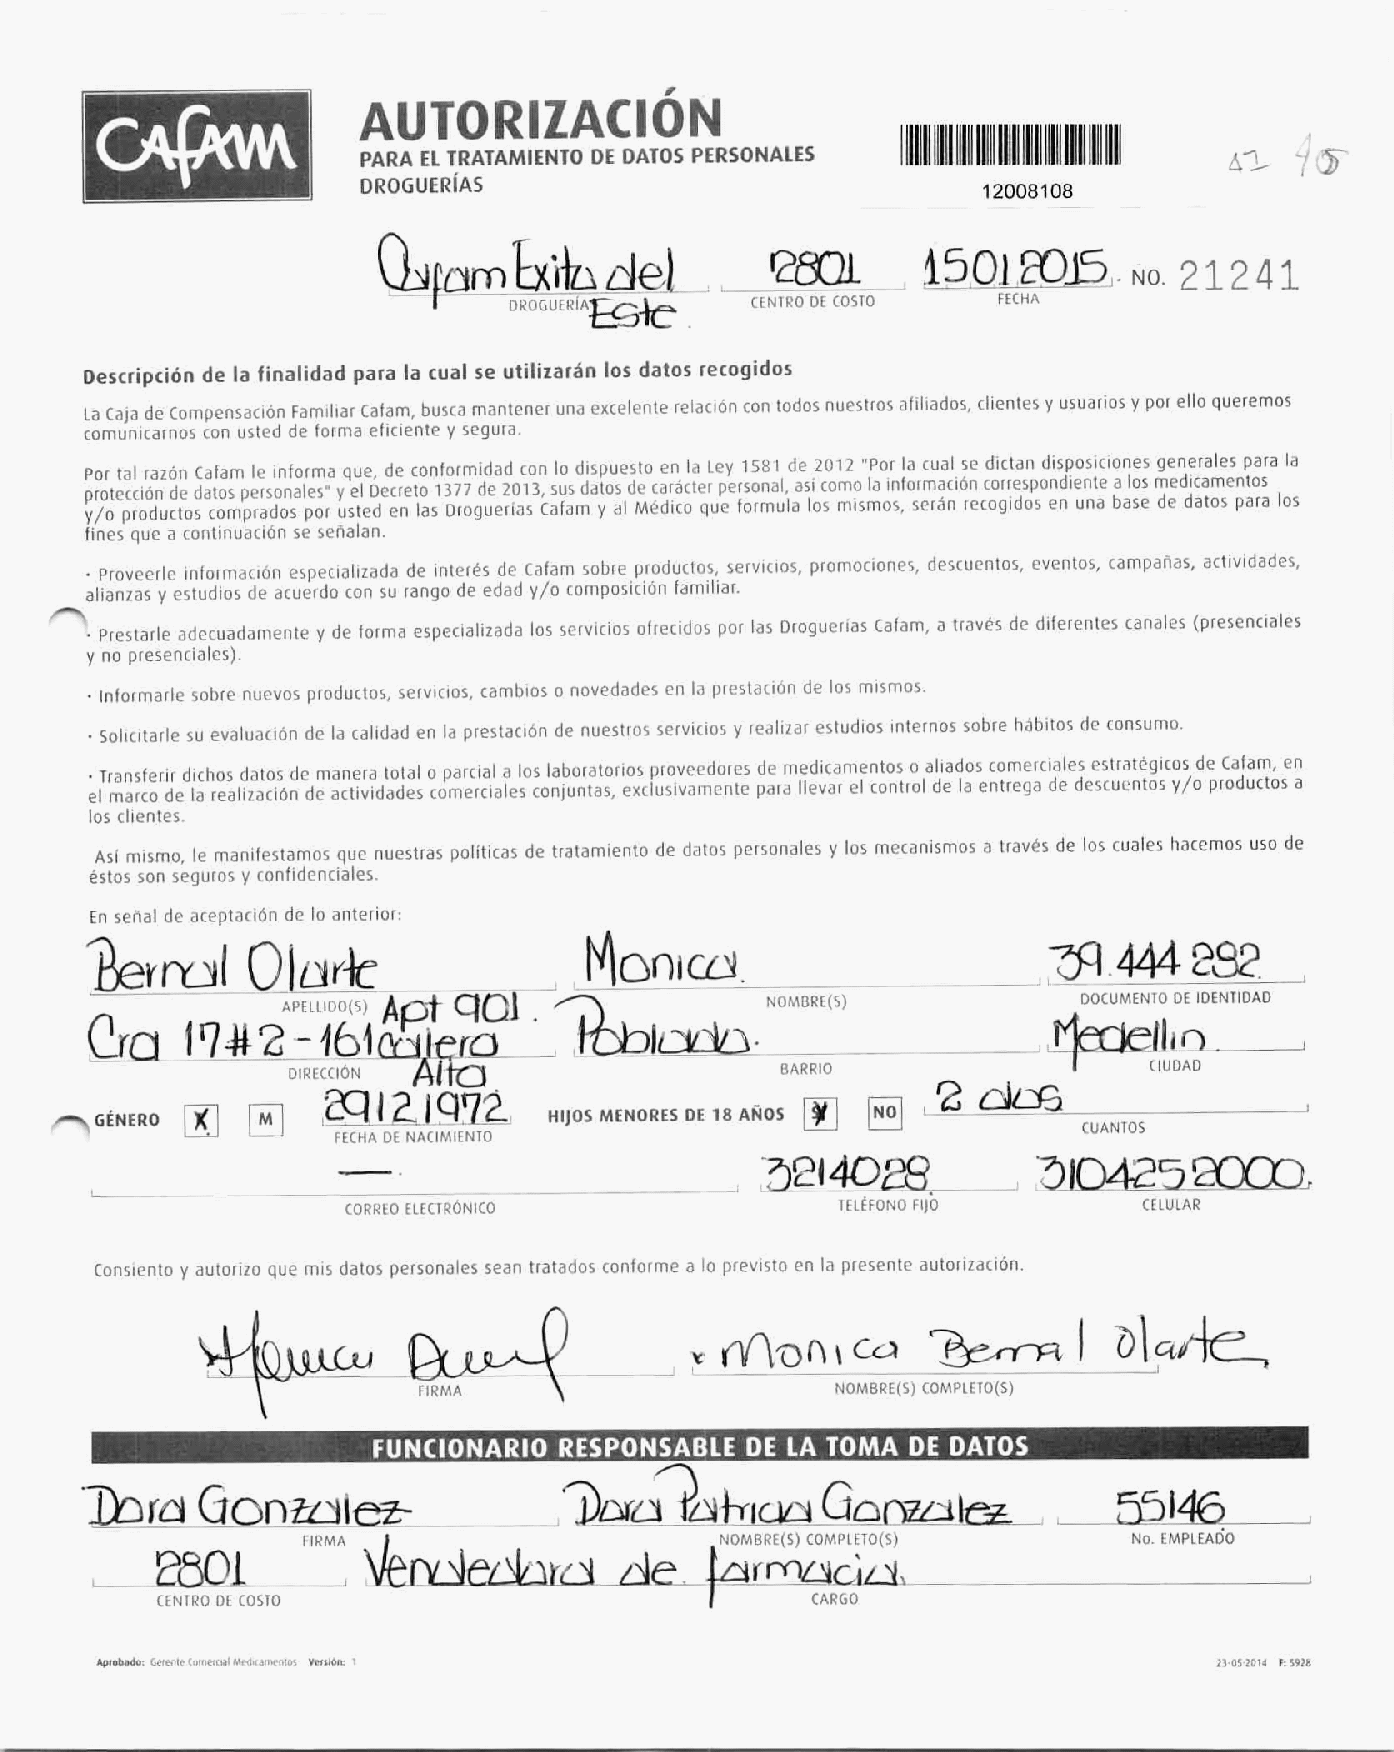 CAFAM
AUTORIZACIÓN
PARA EL TRATAMIENTO DE DATOS PERSONALES
DROGUERÍAS
12008108
Cafam Exito del Este
2801
15012015
NO. 21241
DROGUERÍA
CENTRO DE COSTO
FECHA
Descripción de la finalidad para la cual se utilizarán los datos recogidos
La Caja de Compensación Familiar Cafam, busca mantener una excelente relación con todos nuestros afiliados, clientes y usuarios y por ello queremos
comunicarnos con usted de forma eficiente y segura.
Por tal razón Cafam le informa que, de conformidad con lo dispuesto en la Ley 1581 de 2012 "Por la cual se dictan disposiciones generales para la
protección de datos personales" y el Decreto 1377 de 2013, sus datos de carácter personal, asi como la información correspondiente a los medicamentos
y/o productos comprados por usted en las Droguerías Cafam y al Médico que formula los mismos, serán recogidos en una base de datos para los
fines que a continuación se señalan.
· Proveerle información especializada de interés de Cafam sobre productos, servicios, promociones, descuentos, eventos, campañas, actividades,
alianzas y estudios de acuerdo con su rango de edad y/o composición familiar.
· Prestarle adecuadamente y de forma especializada los servicios ofrecidos por las Droguerías Cafam, a través de diferentes canales (presenciales
y no presenciales).
· Informarle sobre nuevos productos, servicios, cambios o novedades en la prestación de los mismos.
· Solicitarle su evaluación de la calidad en la prestación de nuestros servicios y realizar estudios internos sobre hábitos de consumo.
· Transferir dichos datos de manera total o parcial a los laboratorios proveedores de medicamentos o aliados comerciales estratégicos de Cafam, en
el marco de la realización de actividades comerciales conjuntas, exclusivamente para llevar el control de la entrega de descuentos y/o productos a
los clientes.
Así mismo, le manifestamos que nuestras políticas de tratamiento de datos personales y los mecanismos a través de los cuales hacemos uso de
éstos son seguros y confidenciales.
En señal de aceptación de lo anterior:
Bernal Olarte Monica. 39.444 292
APELLIDO(S) NOMBRE(S) DOCUMENTO DE IDENTIDAD
Apt 901.
Cra 17#2-161 Poblado. Medellin
Alta
DIRECCIÓN BARRIO CIUDAD
GÉNERO X M 29121972 HIJOS MENORES DE 18 AÑOS X NO 2 dos
FECHA DE NACIMIENTO CUANTOS
— 3214028 3104252000.
CORREO ELECTRÓNICO TELÉFONO FIJO CELULAR
Consiento y autorizo que mis datos personales sean tratados conforme a lo previsto en la presente autorización.
Monica Bernal Olarte
FIRMA NOMBRE(S) COMPLETO(S)
FUNCIONARIO RESPONSABLE DE LA TOMA DE DATOS
Dora Gonzalez Dora Patricia Gonzalez 55146
FIRMA NOMBRE(S) COMPLETO(S) No. EMPLEADO
2801 Vendedora de farmacia.
CENTRO DE COSTO CARGO
Aprobado: Gerente Comercial Medicamentos Versión: 1
23-05-2014 F: 5928